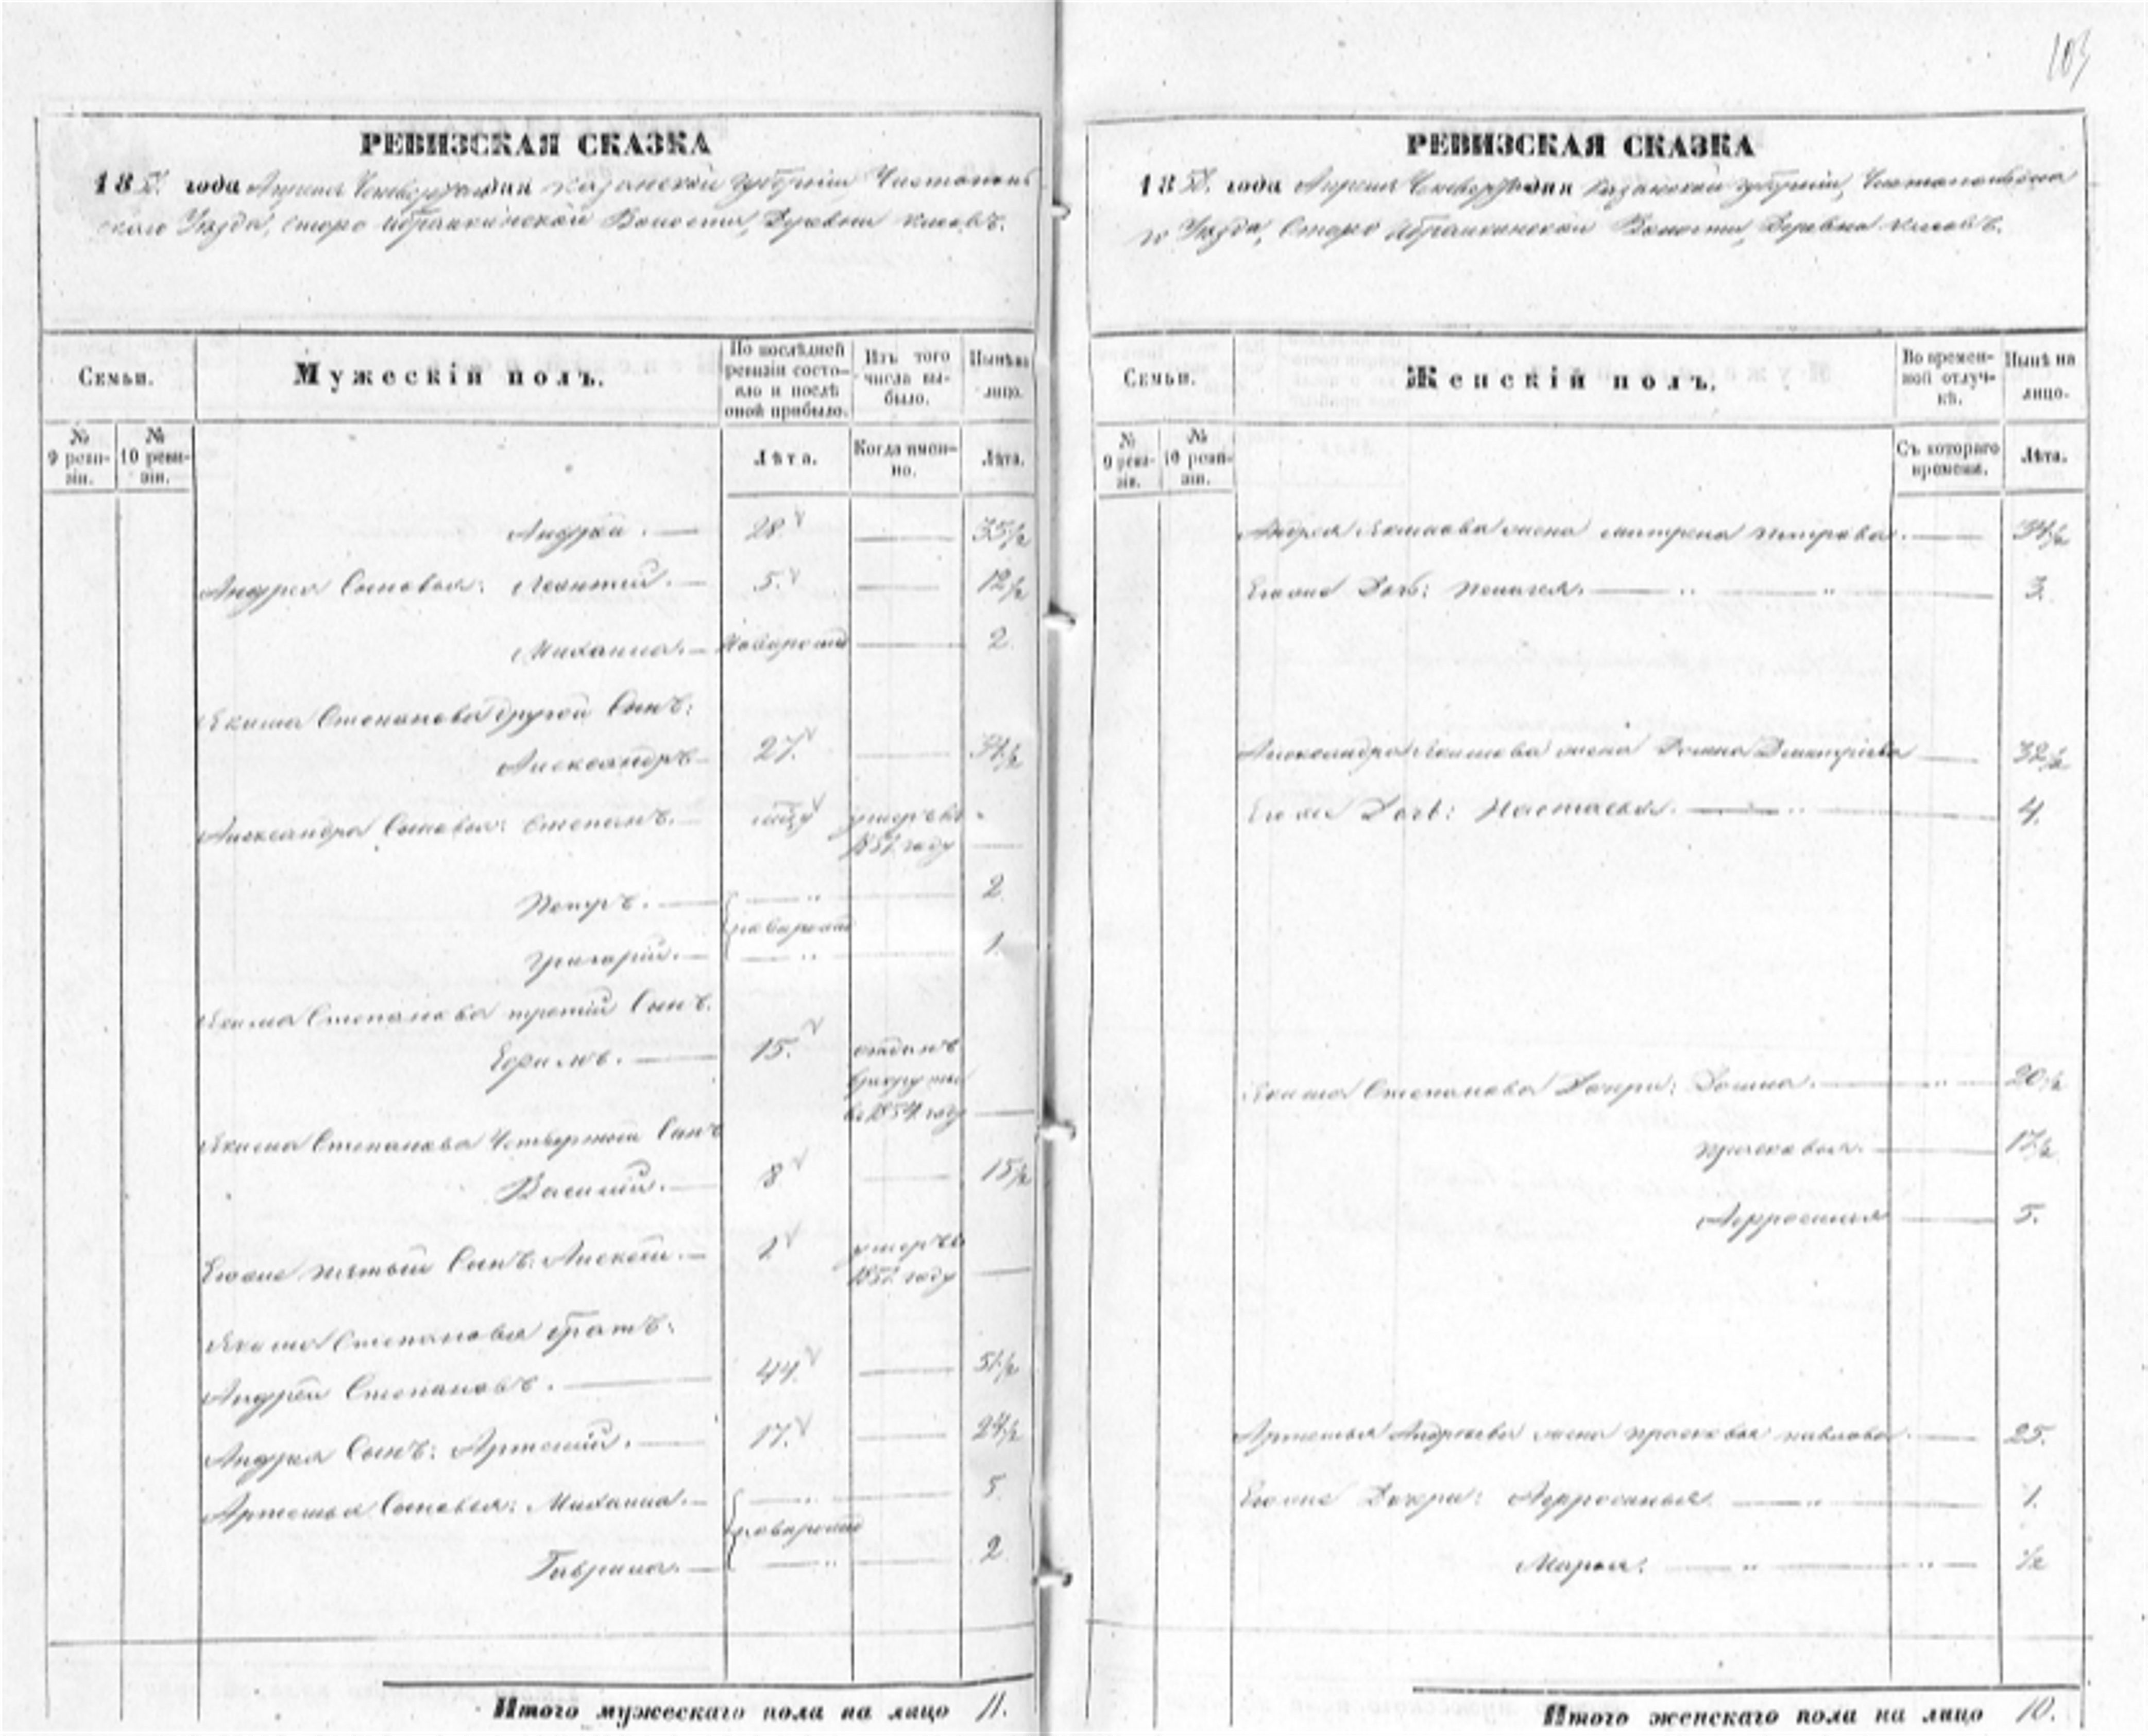 103
РЕВИЗСКАЯ СКАЗКА
185 года Апреля дня Казанской губернии, Чистополь
скаго Уезда, Старо Ибрайкинской Волости, Деревни
Семьи.
Мужескій полъ.
По послѣдней ревизіи состояло и послѣ оной прибыло.
Изъ того числа выбыло.
Нынѣ на лицо.
№ 9 ревизіи.
№ 10 ревизіи.
Лѣта.
Когда именно.
Лѣта.
Андрей. 28 35½
Андрея Сыновья: Леонтий. 5. 12½
Михаила. новорожд 2.
Якима Степанова другой Сынъ:
Александръ 27. 34½
Александра Сыновья: Степанъ. умеръ въ
1851 году
Петръ. 2.
новорожд
Григорий. 1.
Якима Степанова третий Сынъ.
Ефимъ. 15. отданъ
в рекруты
в 1854 году
Якима Степанова Четвертый Сынъ
Василий. 8 15½
Егоже пятый Сынъ: Алексей. 1 умеръ въ
1851 году
Якима Степанова братъ:
Андрей Степановъ. 44. 51½
Андрея Сынъ: Артемий. 17. 24½
Артемья Сыновья: Михаила. 5.
новорожд
Гаврила. 2.
Итого мужескаго пола на лицо 11.
РЕВИЗСКАЯ СКАЗКА
185 года Апреля дня Казанской губернии, Чистопольска
го Уезда, Старо Ибрайкинской Волости, Деревни
Семьи.
Женскій полъ.
Во временной отлучкѣ.
Нынѣ на лицо.
№ 9 ревизіи.
№ 10 ревизіи.
Съ котораго времени.
Лѣта.
Андрея Якимова жена Матрена Петрова. 34½
Егоже Дочь: Пелагея. 3.
Александра Якимова жена Домна Дмитриева 32½
Егоже Дочь: Настасья. 4.
Якима Степанова Дочри: Домна. 20½
Прасковья. 17½
Афросинья 5.
Артемья Андреева жена Прасковья Павлова. 25.
Егоже Дочри: Афросинья 1.
Марья. ½
Итого женскаго пола на лицо 10.